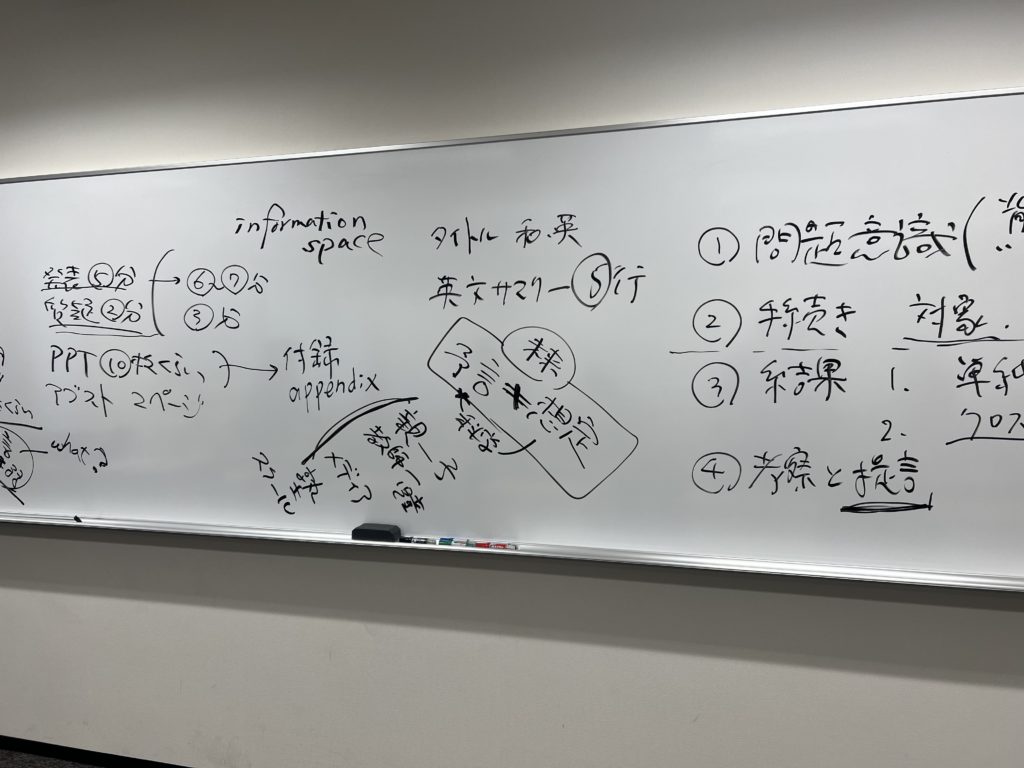 information
space
発表⑤分
質疑②分
→⑥、⑦分
③分
PPT⑩枚くらい
アブスト 2ページ
→付録
appendix
what?
タイトル 和・英
英文サマリー⑤行
予言≠想定
メディア
①問題意識(
②手続き 対象、
③結果 1. 単純
2. クロス
④考察と提言